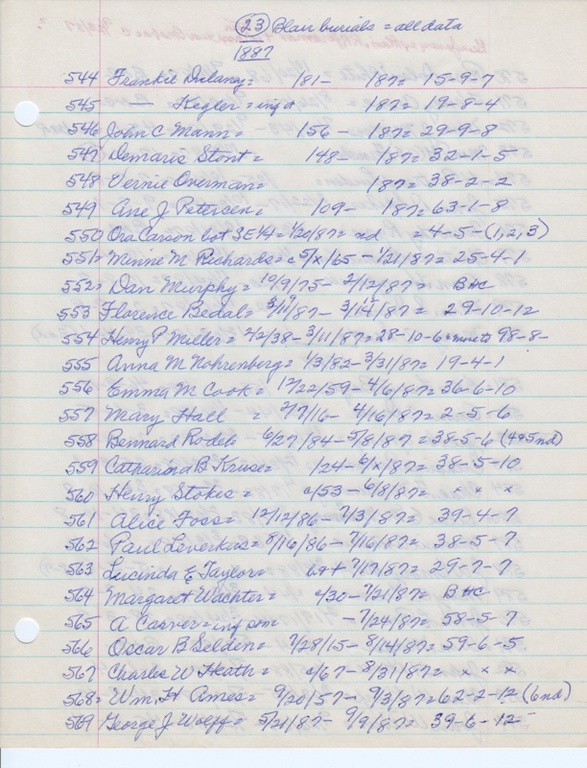 23 Blair burials = all data
1887
544 Frankie Dulaney = /81 - 187= 15-9-7
545 — Kegler = inf d 187= 19-8-4
546 John C Mann = 156 - 187= 29-9-8
547 Demaris Stont = 148 - 187= 32-1-5
548 Vernie Overman = 187= 38-2-2
549 Ane J Petersen = 109 - 187= 63-1-8
550 Ora Carson bot SE 1/4 = 1/20/87= nd = 4-5-(1,2,3)
551 Minne M Richards = c 5/x/65 - 1/21/87= 25-4-1
552 = Dan Murphy = 10/9/75 - 2/12/87= BHC
553 Florence Bedal = 3/11/87 - 3/15/87= 29-10-12
554 Henry P Miller = 2/2/38 - 3/11/87= 28-10-6 = 98-8-
555 Anna M Nohrenberg = 1/3/82 - 3/31/87= 19-4-1
556 Emma M Cook = 12/22/59 - 4/6/87= 36-6-10
557 Mary Hall = 2/7/16 - 4/16/87= 2-5-6
558 Bennard Rodeb 6/27/84 - 5/8/87 = 38-5-6 (495nd)
559 Catharina B Kruse = /24 - 6/x/87= 38-5-10
560 Henry Stokes = c/53 - 6/8/87= x x x
561 Alice Foss = 12/12/86 - 7/3/87= 39-4-7
562 Paul Leverkus = 8/16/86 - 7/16/87= 38-5-7
563 Lucinda E Taylor = bot 7/17/87= 29-7-7
564 Margaret Wachter = c/30 - 7/21/87= BHC
565 A Carver = inf om - 7/24/87= 58-5-7
566 Oscar B Selden = 7/28/15 - 8/14/87= 59-6-5
567 Charles W Heath = c/67 - 8/31/87= x x x
568 = Wm. H Ames = 9/20/57 - 9/3/87= 62-2-12 (6nd)
569 George J Wolff = 5/21/87 - 9/9/87= 39-6-12